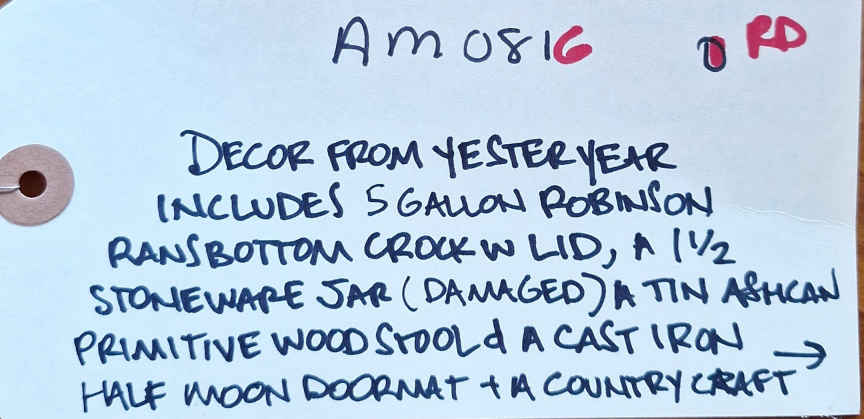 AM0816 RD
DECOR FROM YESTERYEAR
INCLUDES 5 GALLON ROBINSON
RANSBOTTOM CROCK W LID, A 1 1/2
STONEWARE JAR (DAMAGED) A TIN ASHCAN
PRIMITIVE WOOD STOOL & A CAST IRON
HALF MOON DOORMAT + A COUNTRY CRAFT →